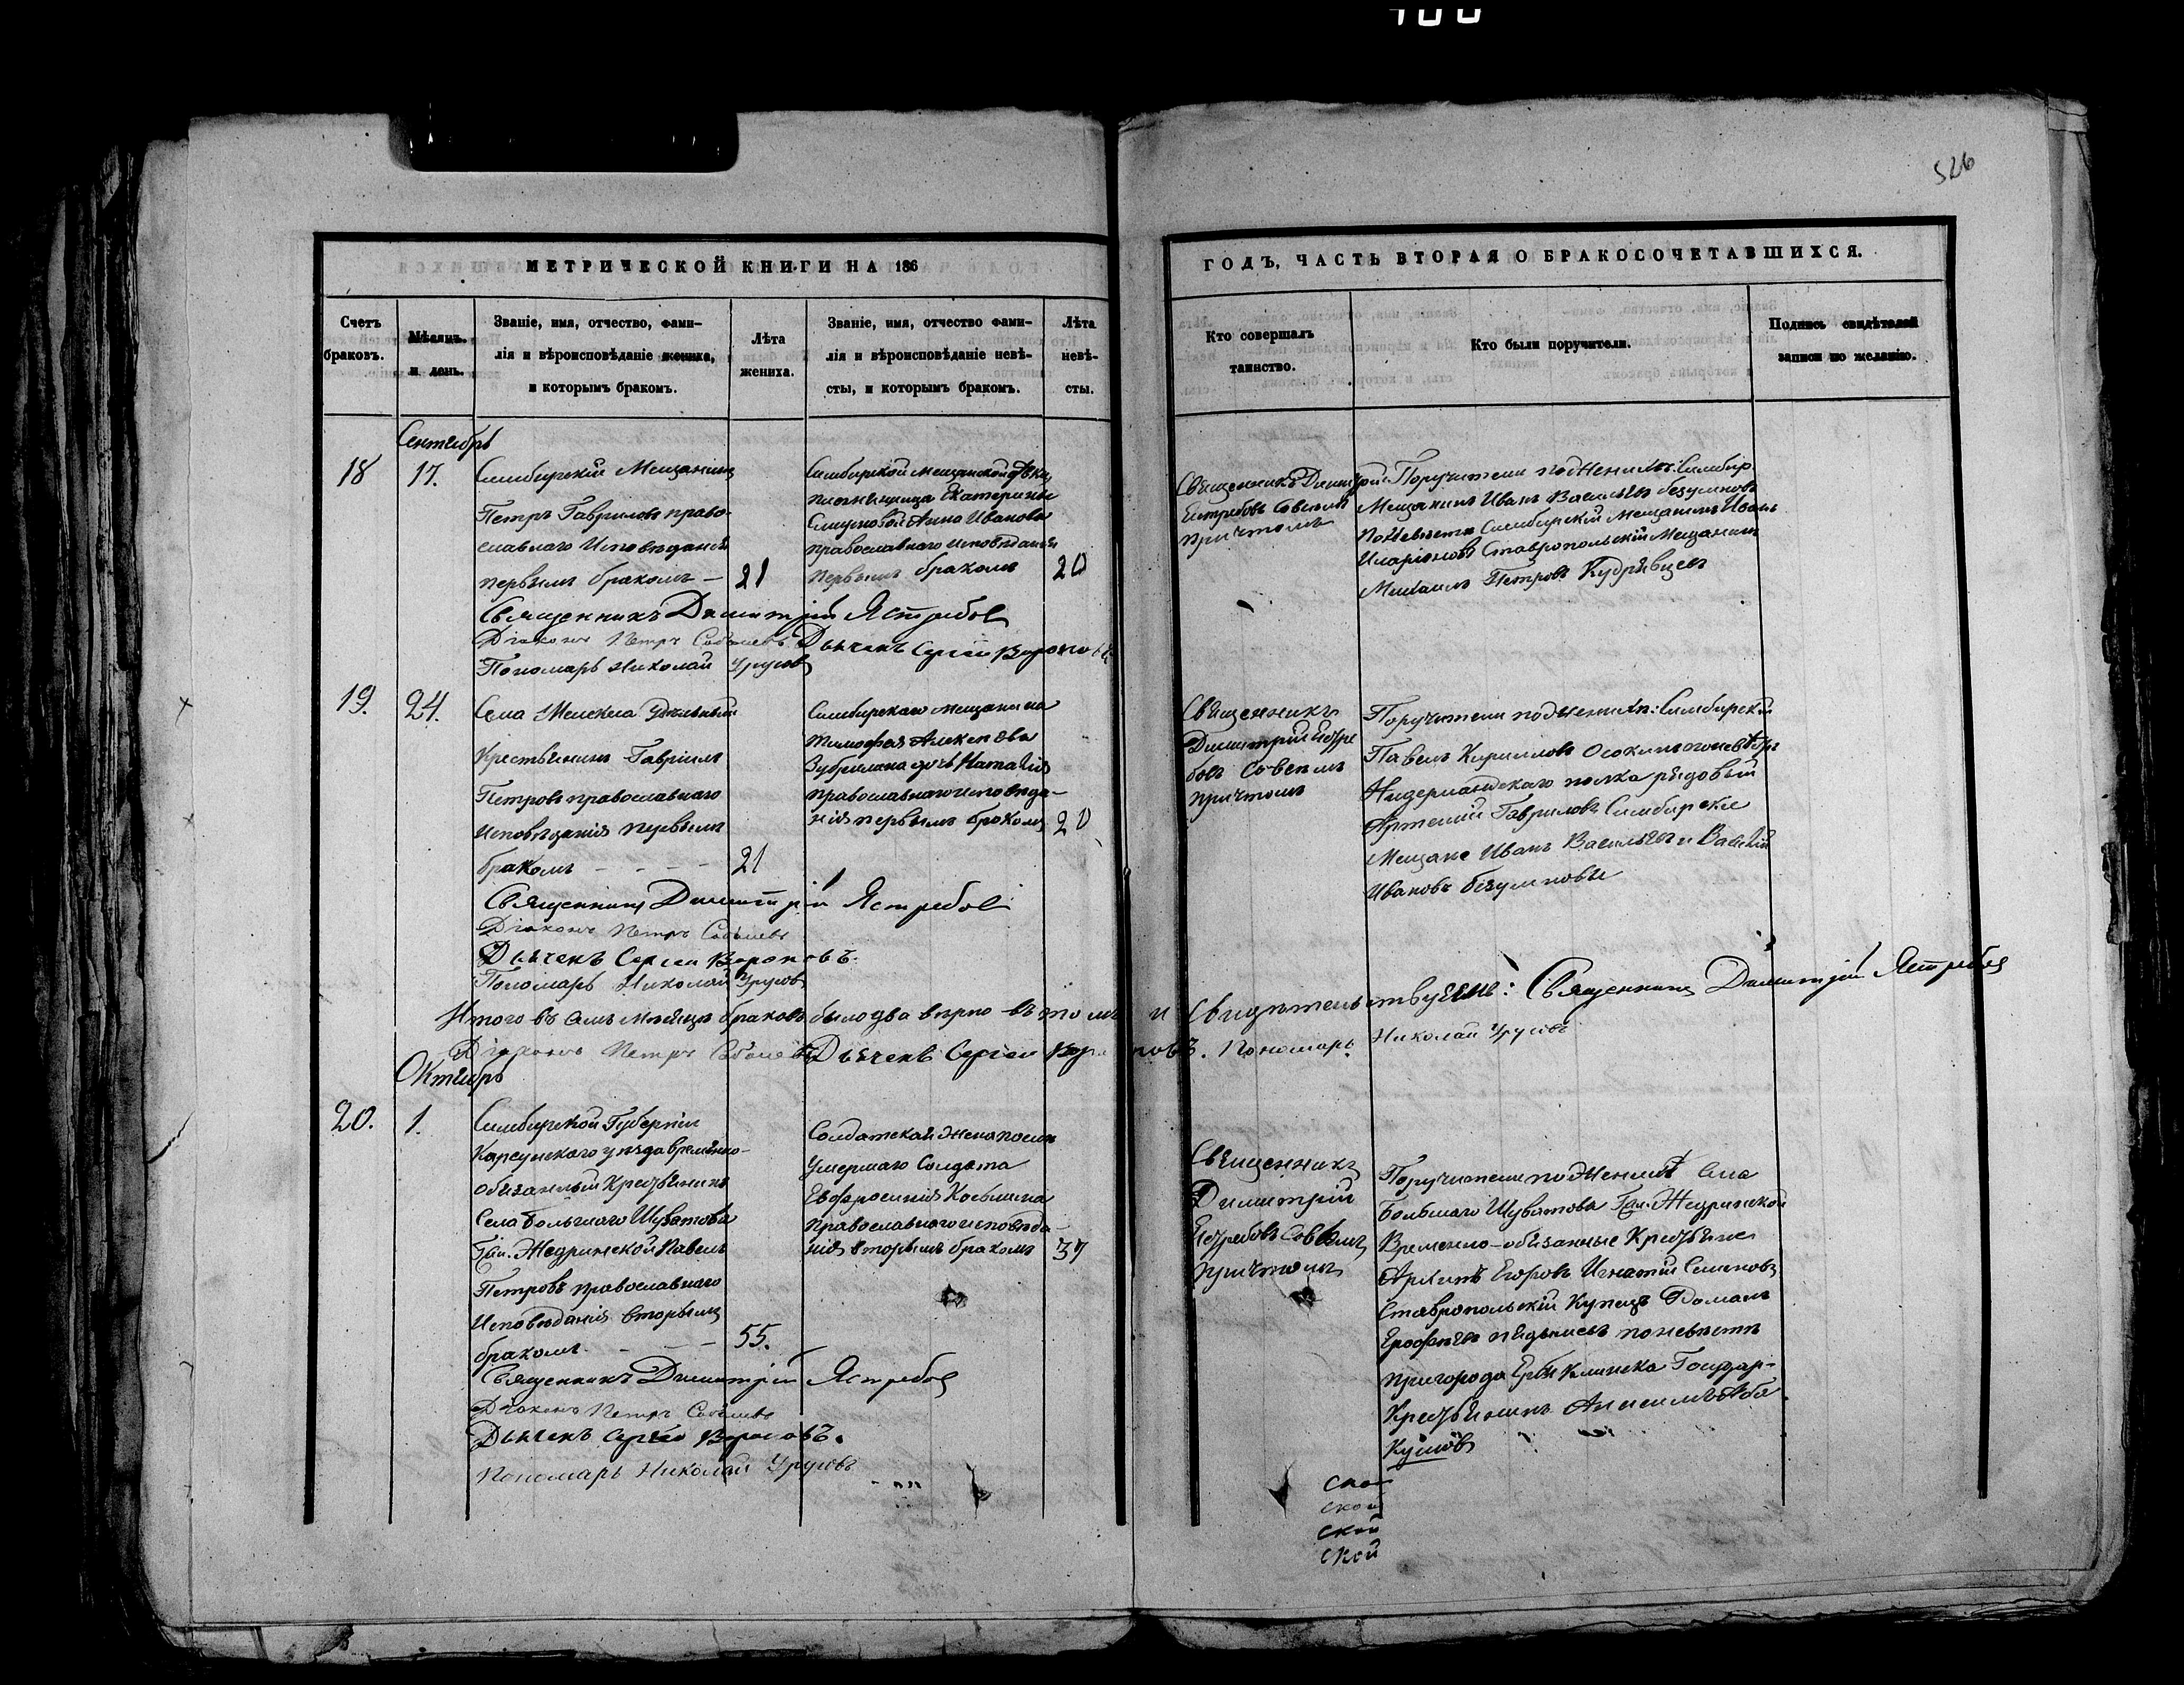 526
МЕТРИЧЕСКОЙ КНИГИ НА 186
ГОДЪ, ЧАСТЬ ВТОРАЯ О БРАКОСОЧЕТАВШИХСЯ.
Счетъ
браковъ.
Мѣсяцъ
и день.
Званіе, имя, отчество, фами-
лія и вѣроисповѣданіе жениха,
и которымъ бракомъ.
Лѣта
жениха.
Званіе, имя, отчество фами-
лія и вѣроисповѣданіе невѣ-
сты, и которымъ бракомъ.
Лѣта
невѣ-
сты.
Кто совершалъ
таинство.
Кто были поручители.
Подпись свидѣтелей
записи по желанію.
Сентябрь
18
17.
Симбирскій Мещанинъ
Петръ Гавриловъ право-
славнаго Исповѣданія
первымъ бракомъ —
21
Симбирской мещанской дѣвки
Екатерины
Анна Иванова
православнаго исповѣданія
первымъ бракомъ
20
Священникъ Димитрій
Ястребовъ Совсѣмъ
причтомъ
Поручители по Женихѣ: Симбир.
Мещанинъ Иванъ Васильевъ Безумновъ
По Невѣстѣ Симбирскій Мещанинъ Иванъ
Иларіоновъ Ставропольскій Мещанинъ
Михаилъ Петровъ Кудрявцевъ
Священникъ Димитрій Ястребовъ
Діаконъ Петръ Соболевъ Дьячекъ Сергѣй Вороновъ
Пономарь Николай Урусовъ
19.
24.
Села Мелекеса Удѣльный
Крестьянинъ Гавріилъ
Петровъ православнаго
Исповѣданія первымъ
бракомъ — — —
21
Симбирскаго мещанина
Тимофея Алексѣева
дочь Наталія
православнаго исповѣда-
нія первымъ бракомъ
20
Священникъ
Димитрій Ястре
бовъ Совсѣмъ
причтомъ
Поручители по Женихѣ: Симбирскій
Павелъ Кирилловъ Осокинъ по невѣстѣ
полка рядовый
Артемій Гавриловъ Симбирскіе
Мещане Иванъ Васильевъ и Василій
Ивановъ Безумновы
Священникъ Димитрій Ястребовъ
Діаконъ Петръ Соболевъ
Дьячекъ Сергѣй Вороновъ.
Пономарь Николай Урусовъ
Итого въ семъ Мѣсяцѣ браковъ было два вѣрно въ томъ и Свидѣтельствуемъ: Священникъ Димитрій Ястребовъ
Діаконъ Петръ Соболевъ Дьячекъ Сергѣй Вороновъ. Пономарь Николай Урусовъ
Октябрь
20.
1.
Симбирской Губерніи
Карсунского уѣзда временно-
обязанный Крестьянинъ
Села Большаго Шуватова
Жедринской Павелъ
Петровъ православнаго
Исповѣданія вторымъ
бракомъ — — —
55.
Солдатская Жена послѣ
Умершаго Солдата
Евфросинія Косьмина
Православнаго исповѣда-
нія вторымъ бракомъ
37
Священникъ
Димитрій
Ястребовъ Совсѣмъ
причтомъ
Поручители по Женихѣ Села
Большаго Шуватова Жедринской
Временно-обязанные Крестьяне
Архипъ Егоровъ Игнатій Семеновъ
Ставропольскій Купецъ
Ерофѣевъ по невѣстѣ
пригорода Ерыклинска Государ-
Крестьянинъ Анисимъ Аба
кумовъ
Священникъ Димитрій Ястребовъ
Діаконъ Петръ Соболевъ
Дьячекъ Сергѣй Вороновъ.
Пономарь Николай Урусовъ
ской
ской
ской